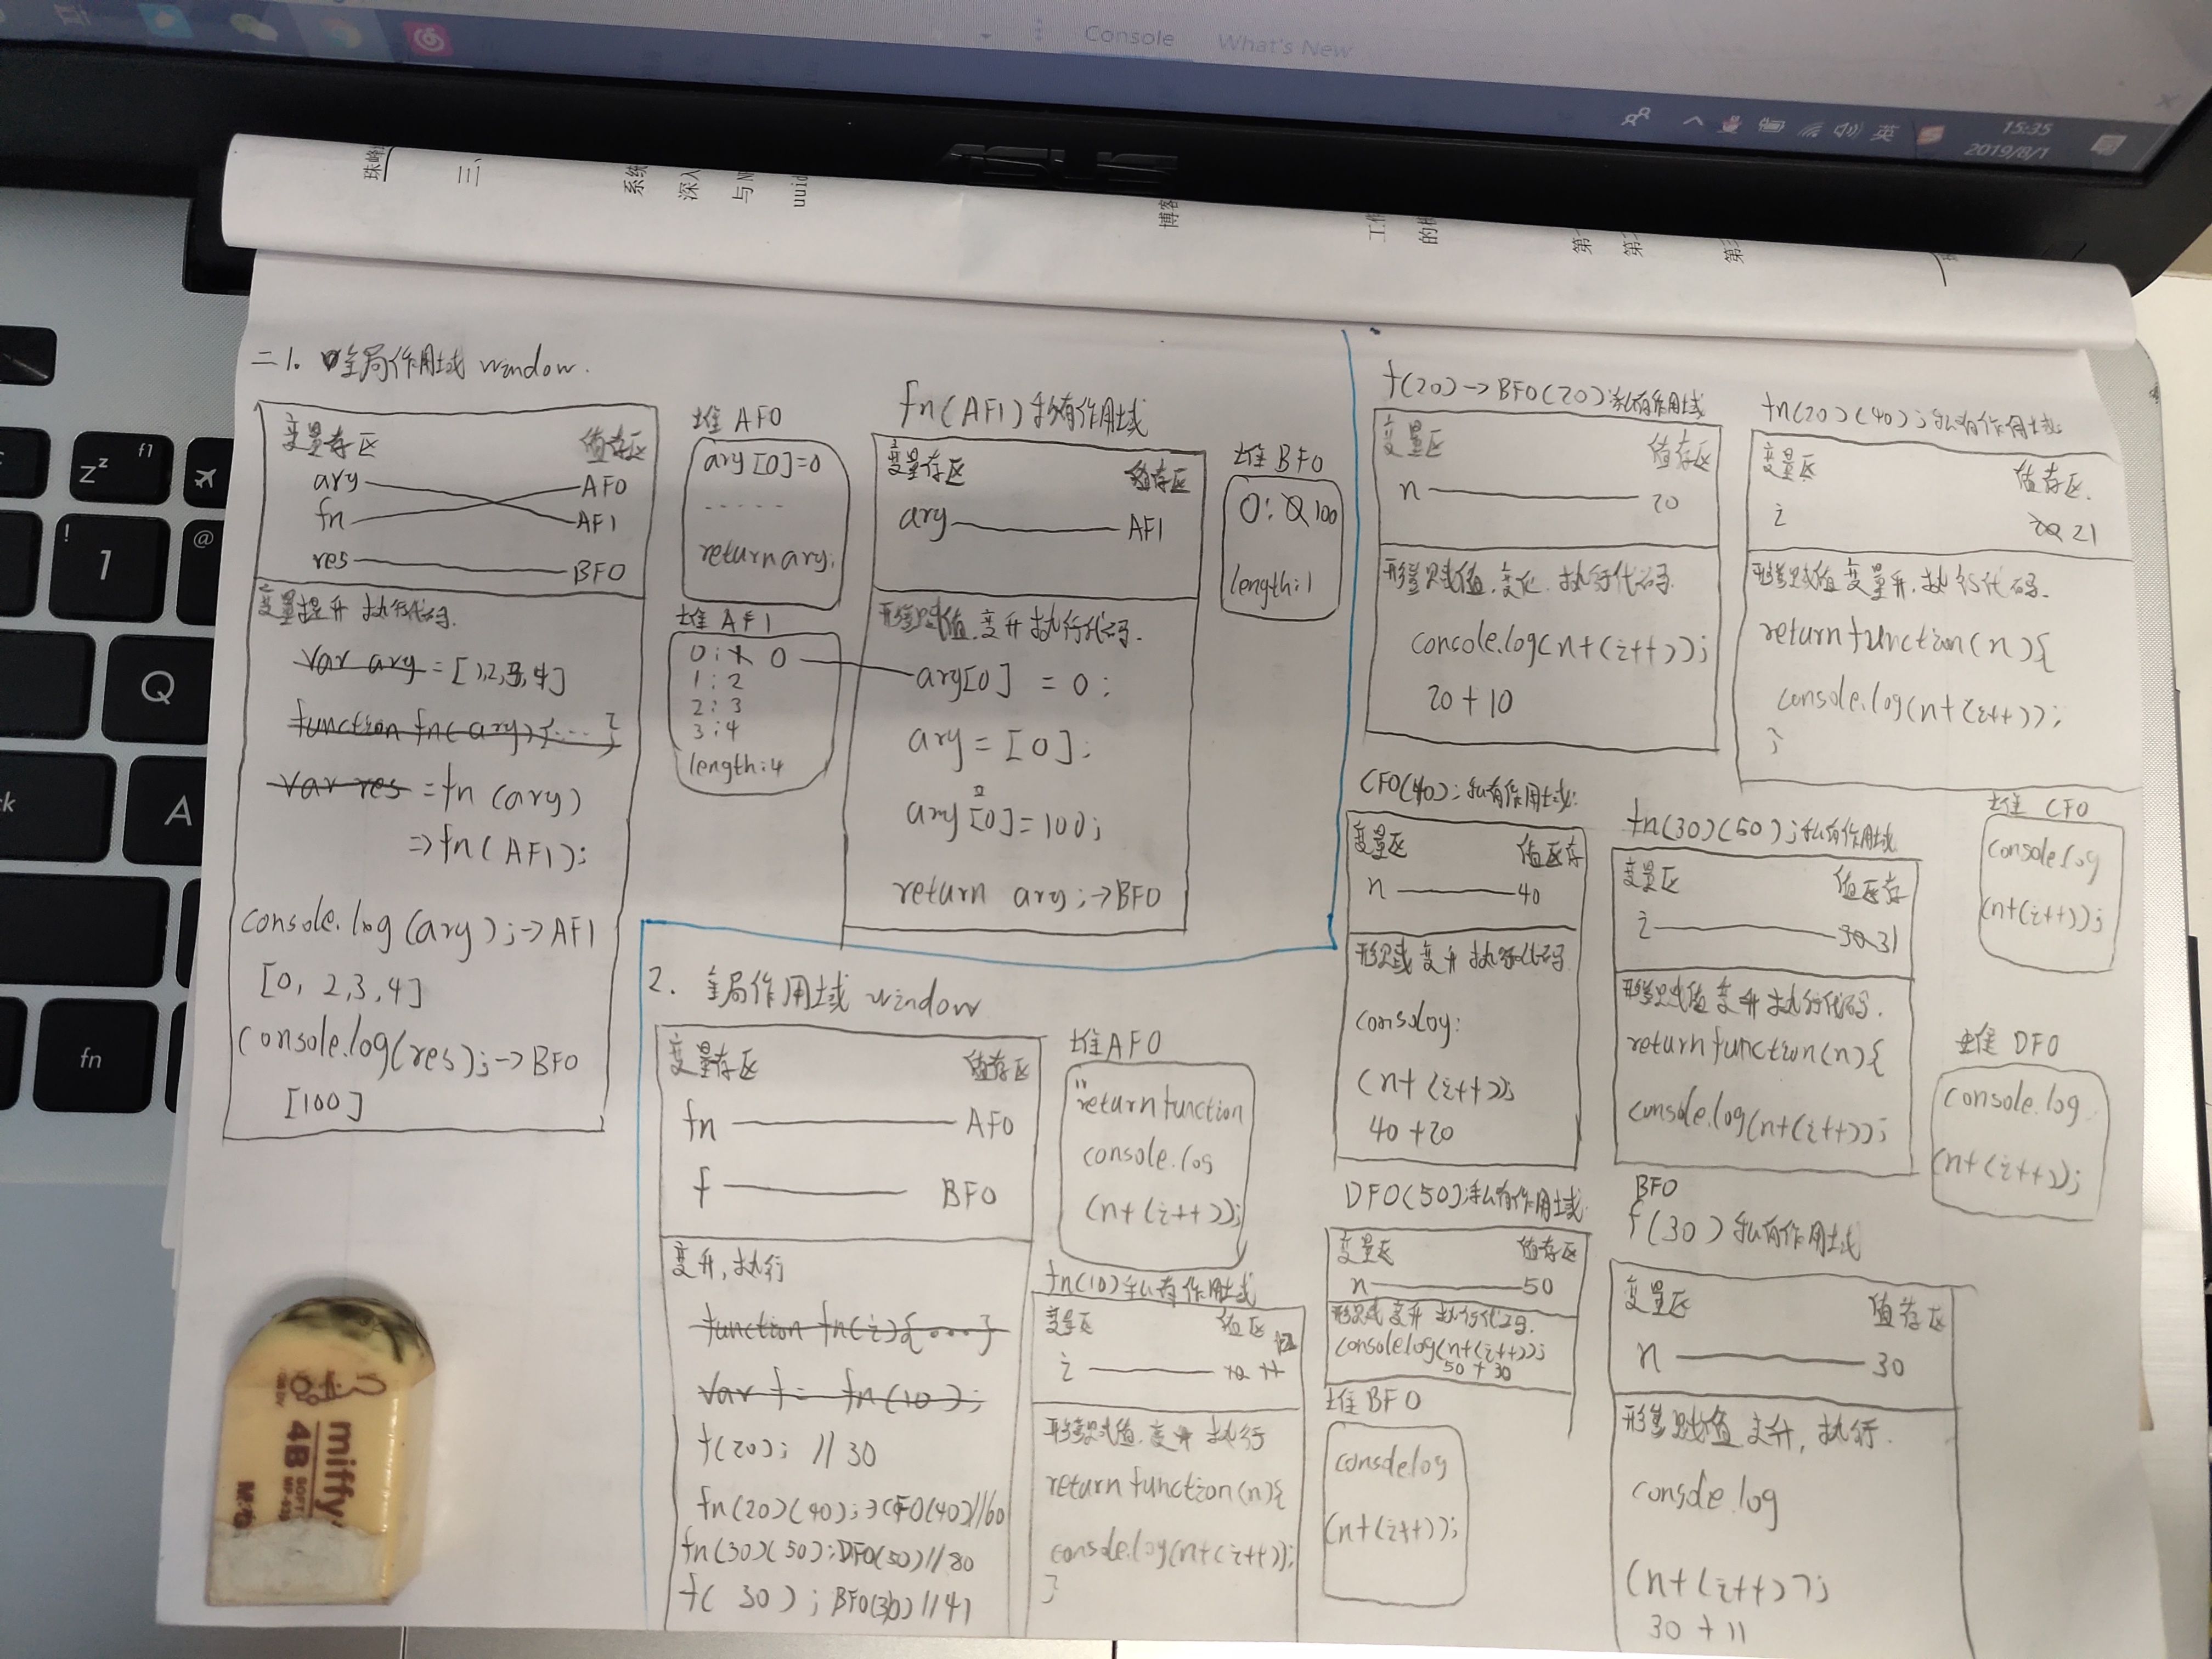 Console What's New
英
15:35
2019/8/1
ASUS
珠峰
三、
系统
深入
与N
uuid
博客
工作
的
第一
第二
第三
f1
Zz
!
1
@
Q
A
fn
miffy
4B
SOFT
二1. 全局作用域 window.
变量存区 值存区
ary AF0
fn AF1
res BF0
变量提升 执行代码.
var ary = [1,2,3,4]
function fn(ary){……}
var res = fn (ary)
=> fn (AF1);
console.log (ary); -> AF1
[0, 2,3,4]
console.log(res); -> BF0
[100]
堆 AF0
ary [0]=0
.....
return ary;
堆 AF1
0: 1 0
1: 2
2: 3
3: 4
length:4
fn (AF1) 私有作用域
变量存区 值存区
ary AF1
形参赋值.变升 执行代码.
ary[0] = 0;
ary = [0];
ary [0]=100;
return ary; -> BF0
堆 BF0
0: 0 100
length:1
2. 全局作用域 window
变量存区 值存区
fn AF0
f BF0
变升,执行
function fn(i){....}
var f = fn(10);
f(20); // 30
fn(20)(40); => CF0(40)//60
fn(30)(50); DF0(50)//80
f( 30 ); BF0(30)//41
堆AF0
"return function
console.log
(n+(i++));
fn(10) 私有作用域
变量区 值区
i 10 11 12
形参赋值.变升 执行
return function(n){
console.log(n+(i++));
}
f(20) -> BF0(20); 私有作用域
变量区 值存区
n 20
形参赋值.变化.执行代码.
console.log(n+(i++));
20 + 10
fn(20)(40); 私有作用域
变量区 值存区.
i 20 21
形参赋值 变量升.执行代码.
return function(n){
console.log(n+(i++));
}
CF0(40); 私有作用域:
变量区 值区存
n 40
形赋 变升 执行代码
consoloy:
(n+(i++));
40 +20
fn(30)(50); 私有作用域
变量区 值区存
i 30 31
形参赋值 变升 执行代码.
return function(n){
console.log(n+(i++));
堆 CF0
console.log
(n+(i++));
堆 DF0
console.log
(n+(i++));
DF0(50); 私有作用域
变量区 值存区
n 50
形赋 变升 执行代码.
console log(n+(i++));
50 + 30
堆 BF0
console log
(n+(i++));
BF0
f (30) 私有作用域
变量区 值存区
n 30
形参赋值 变升, 执行.
console.log
(n+(i++));
30 + 11